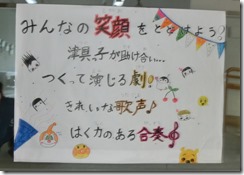 みんなの笑顔をとどけよう♪
津具っ子が助け合い…
つくって演じる劇♪
きれいな歌声♪
はく力のある合奏